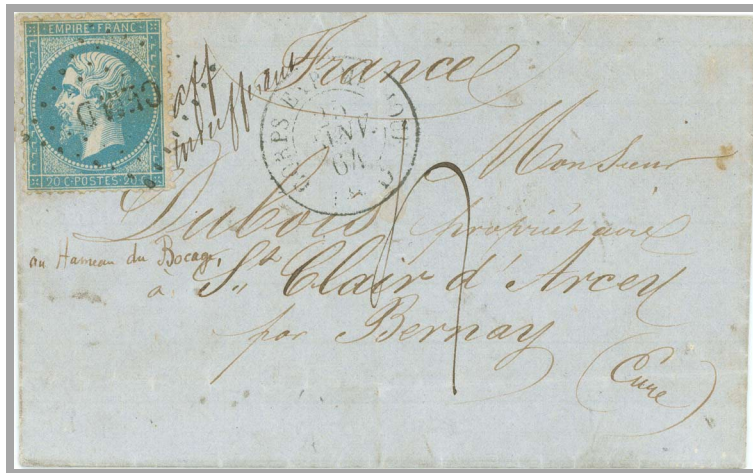 EMPIRE FRANC
CEM.D
20 C·POSTES·20 C
aff
insuffisant
CORPS EXP
JANV
64
France
Monsieur
Dubois propriétaire
au Hameau du Bocage,
à St Clair d'Arcey
par Bernay
(Eure)